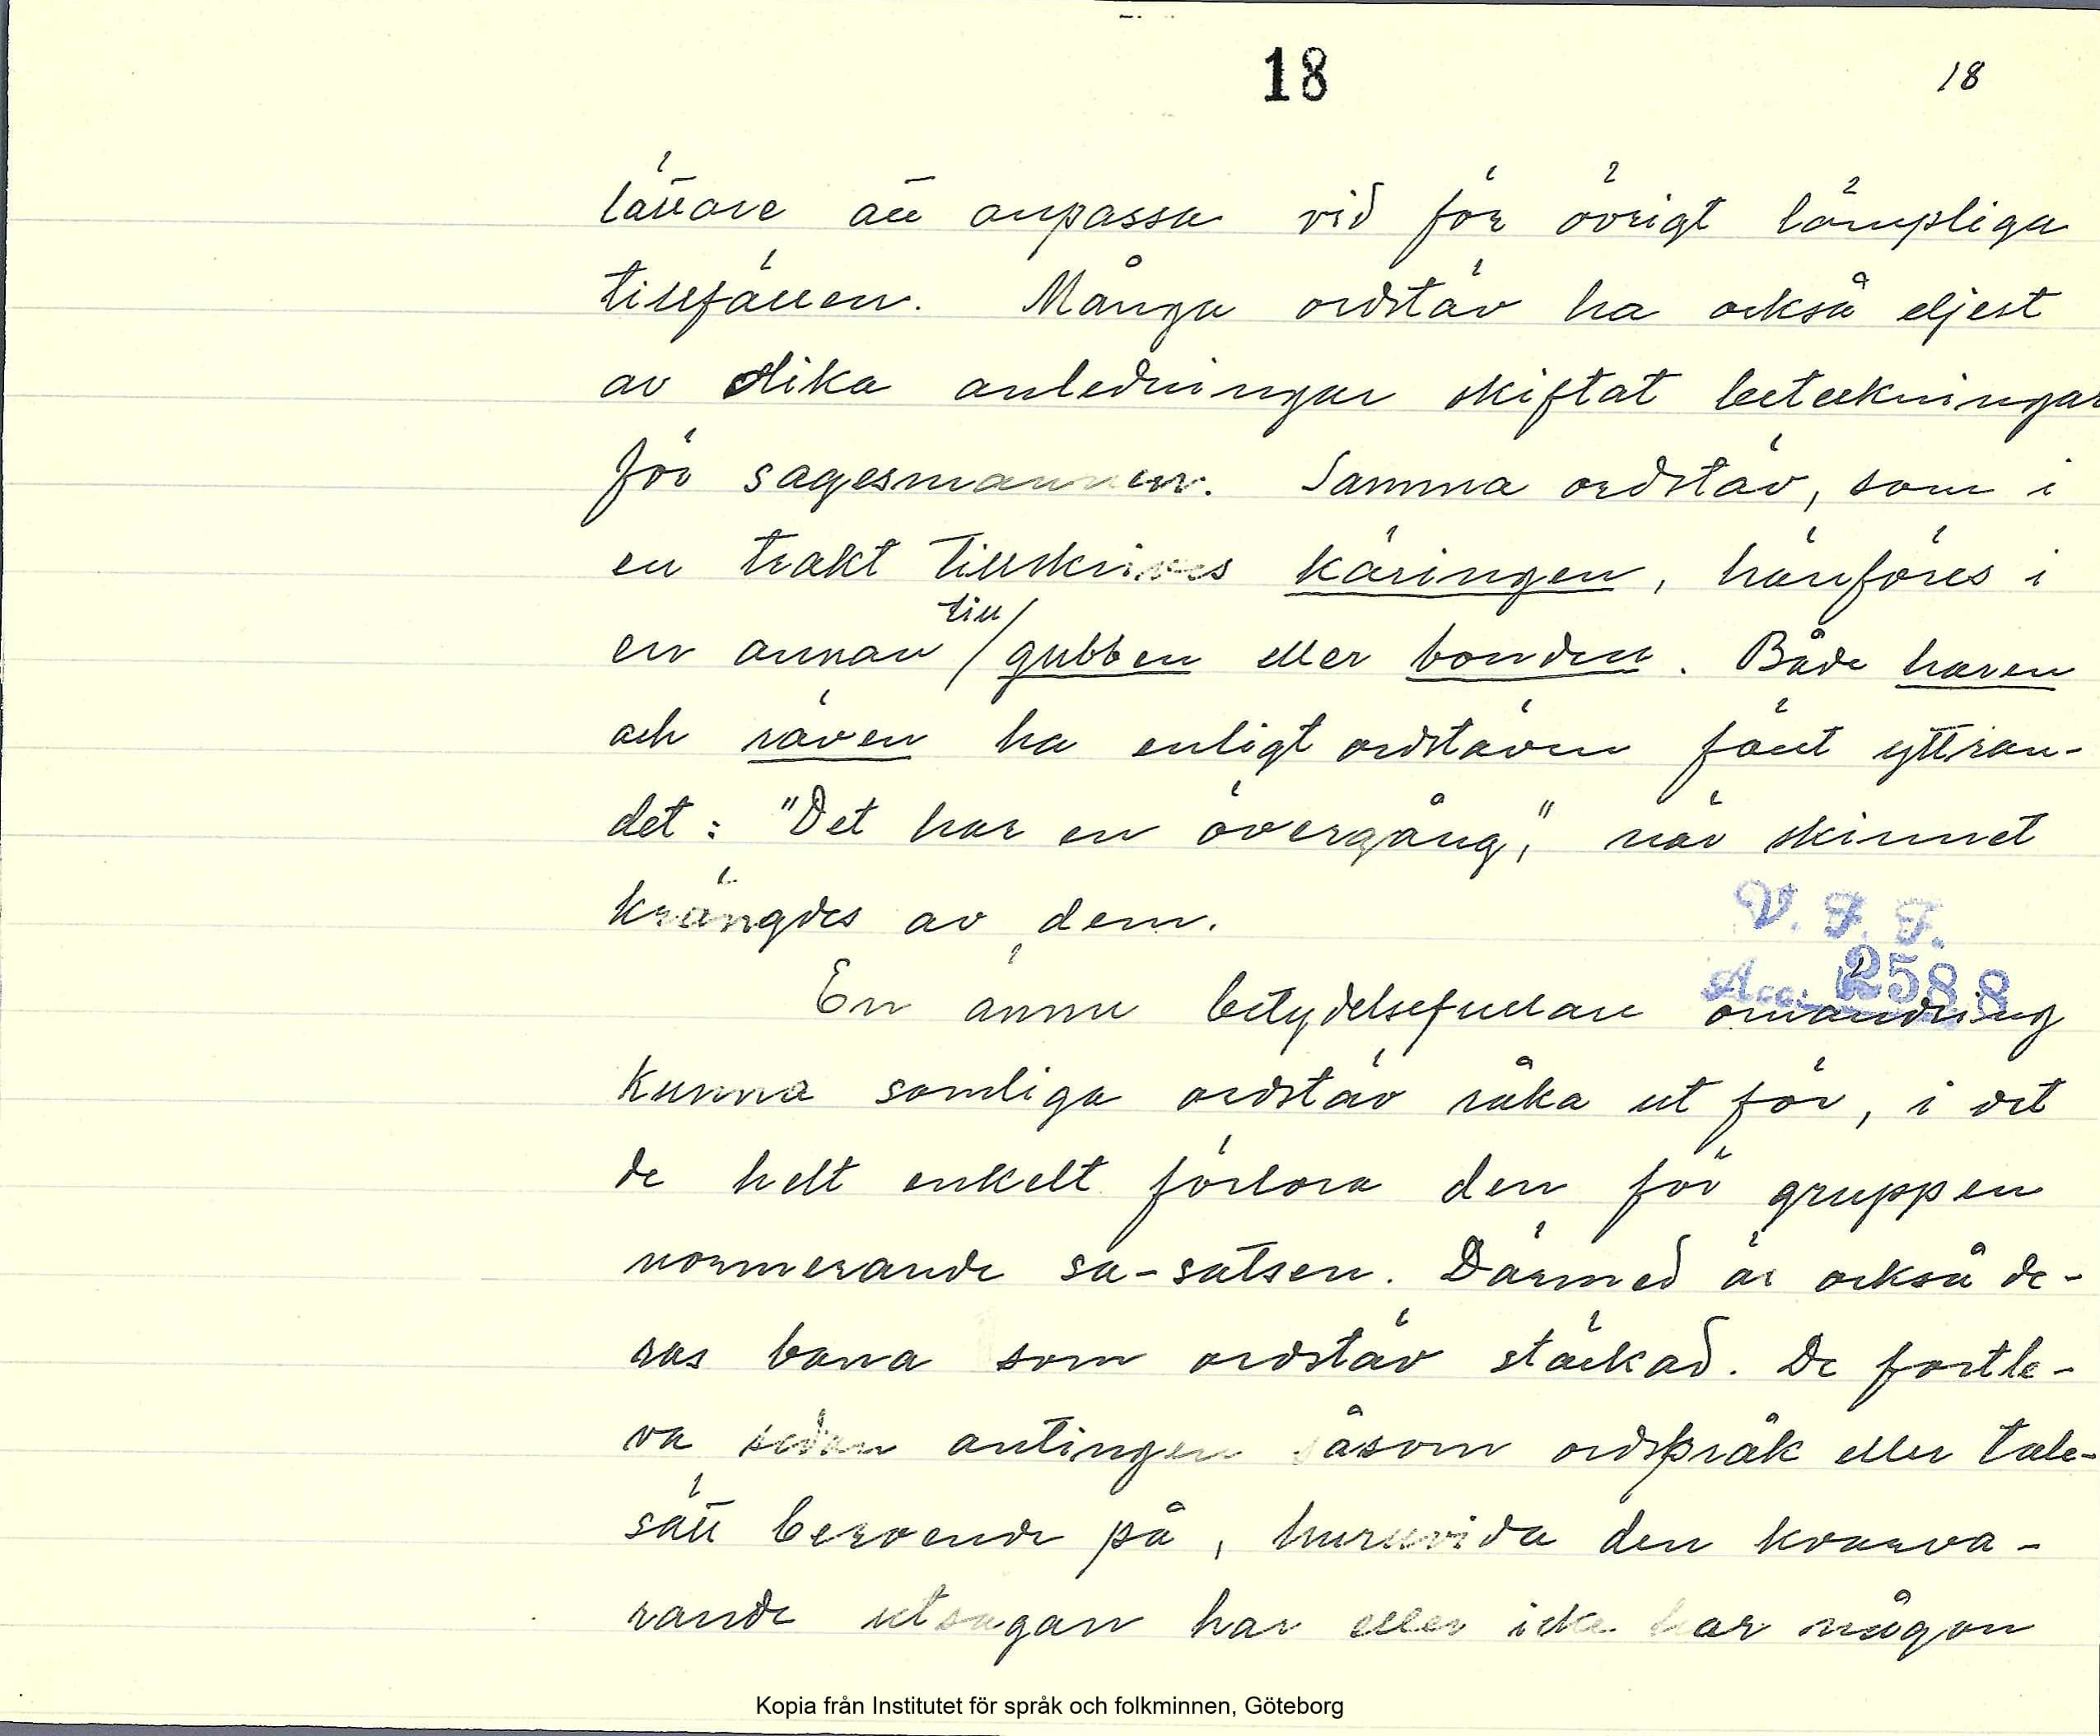 18
18
lättare att anpassa vid för övrigt lämpliga
tillfällen. Många ordstäv ha också eljest
av olika anledningar skiftat beteckningar
för sagesmannen. Samma ordstäv, som i
en trakt tillskrives käringen, hänföres i
till
en annan / gubben eller bonden. Både haren
och räven ha enligt ordstäven fällt yttran-
det: "Det har en övergång," när skinnet
krängdes av dem.
V. F. F.
Acc. 2588
En ännu betydelsefullare omändring
kunna somliga ordstäv råka ut för, i det
de helt enkelt förlora den för gruppen
normerande sa-satsen. Därmed är också de-
ras bana som ordstäv stäckad. De fortle-
va sedan antingen såsom ordspråk eller tale-
sätt beroende på, huruvida den kvarva-
rande utsagan har eller icke har någon
Kopia från Institutet för språk och folkminnen, Göteborg